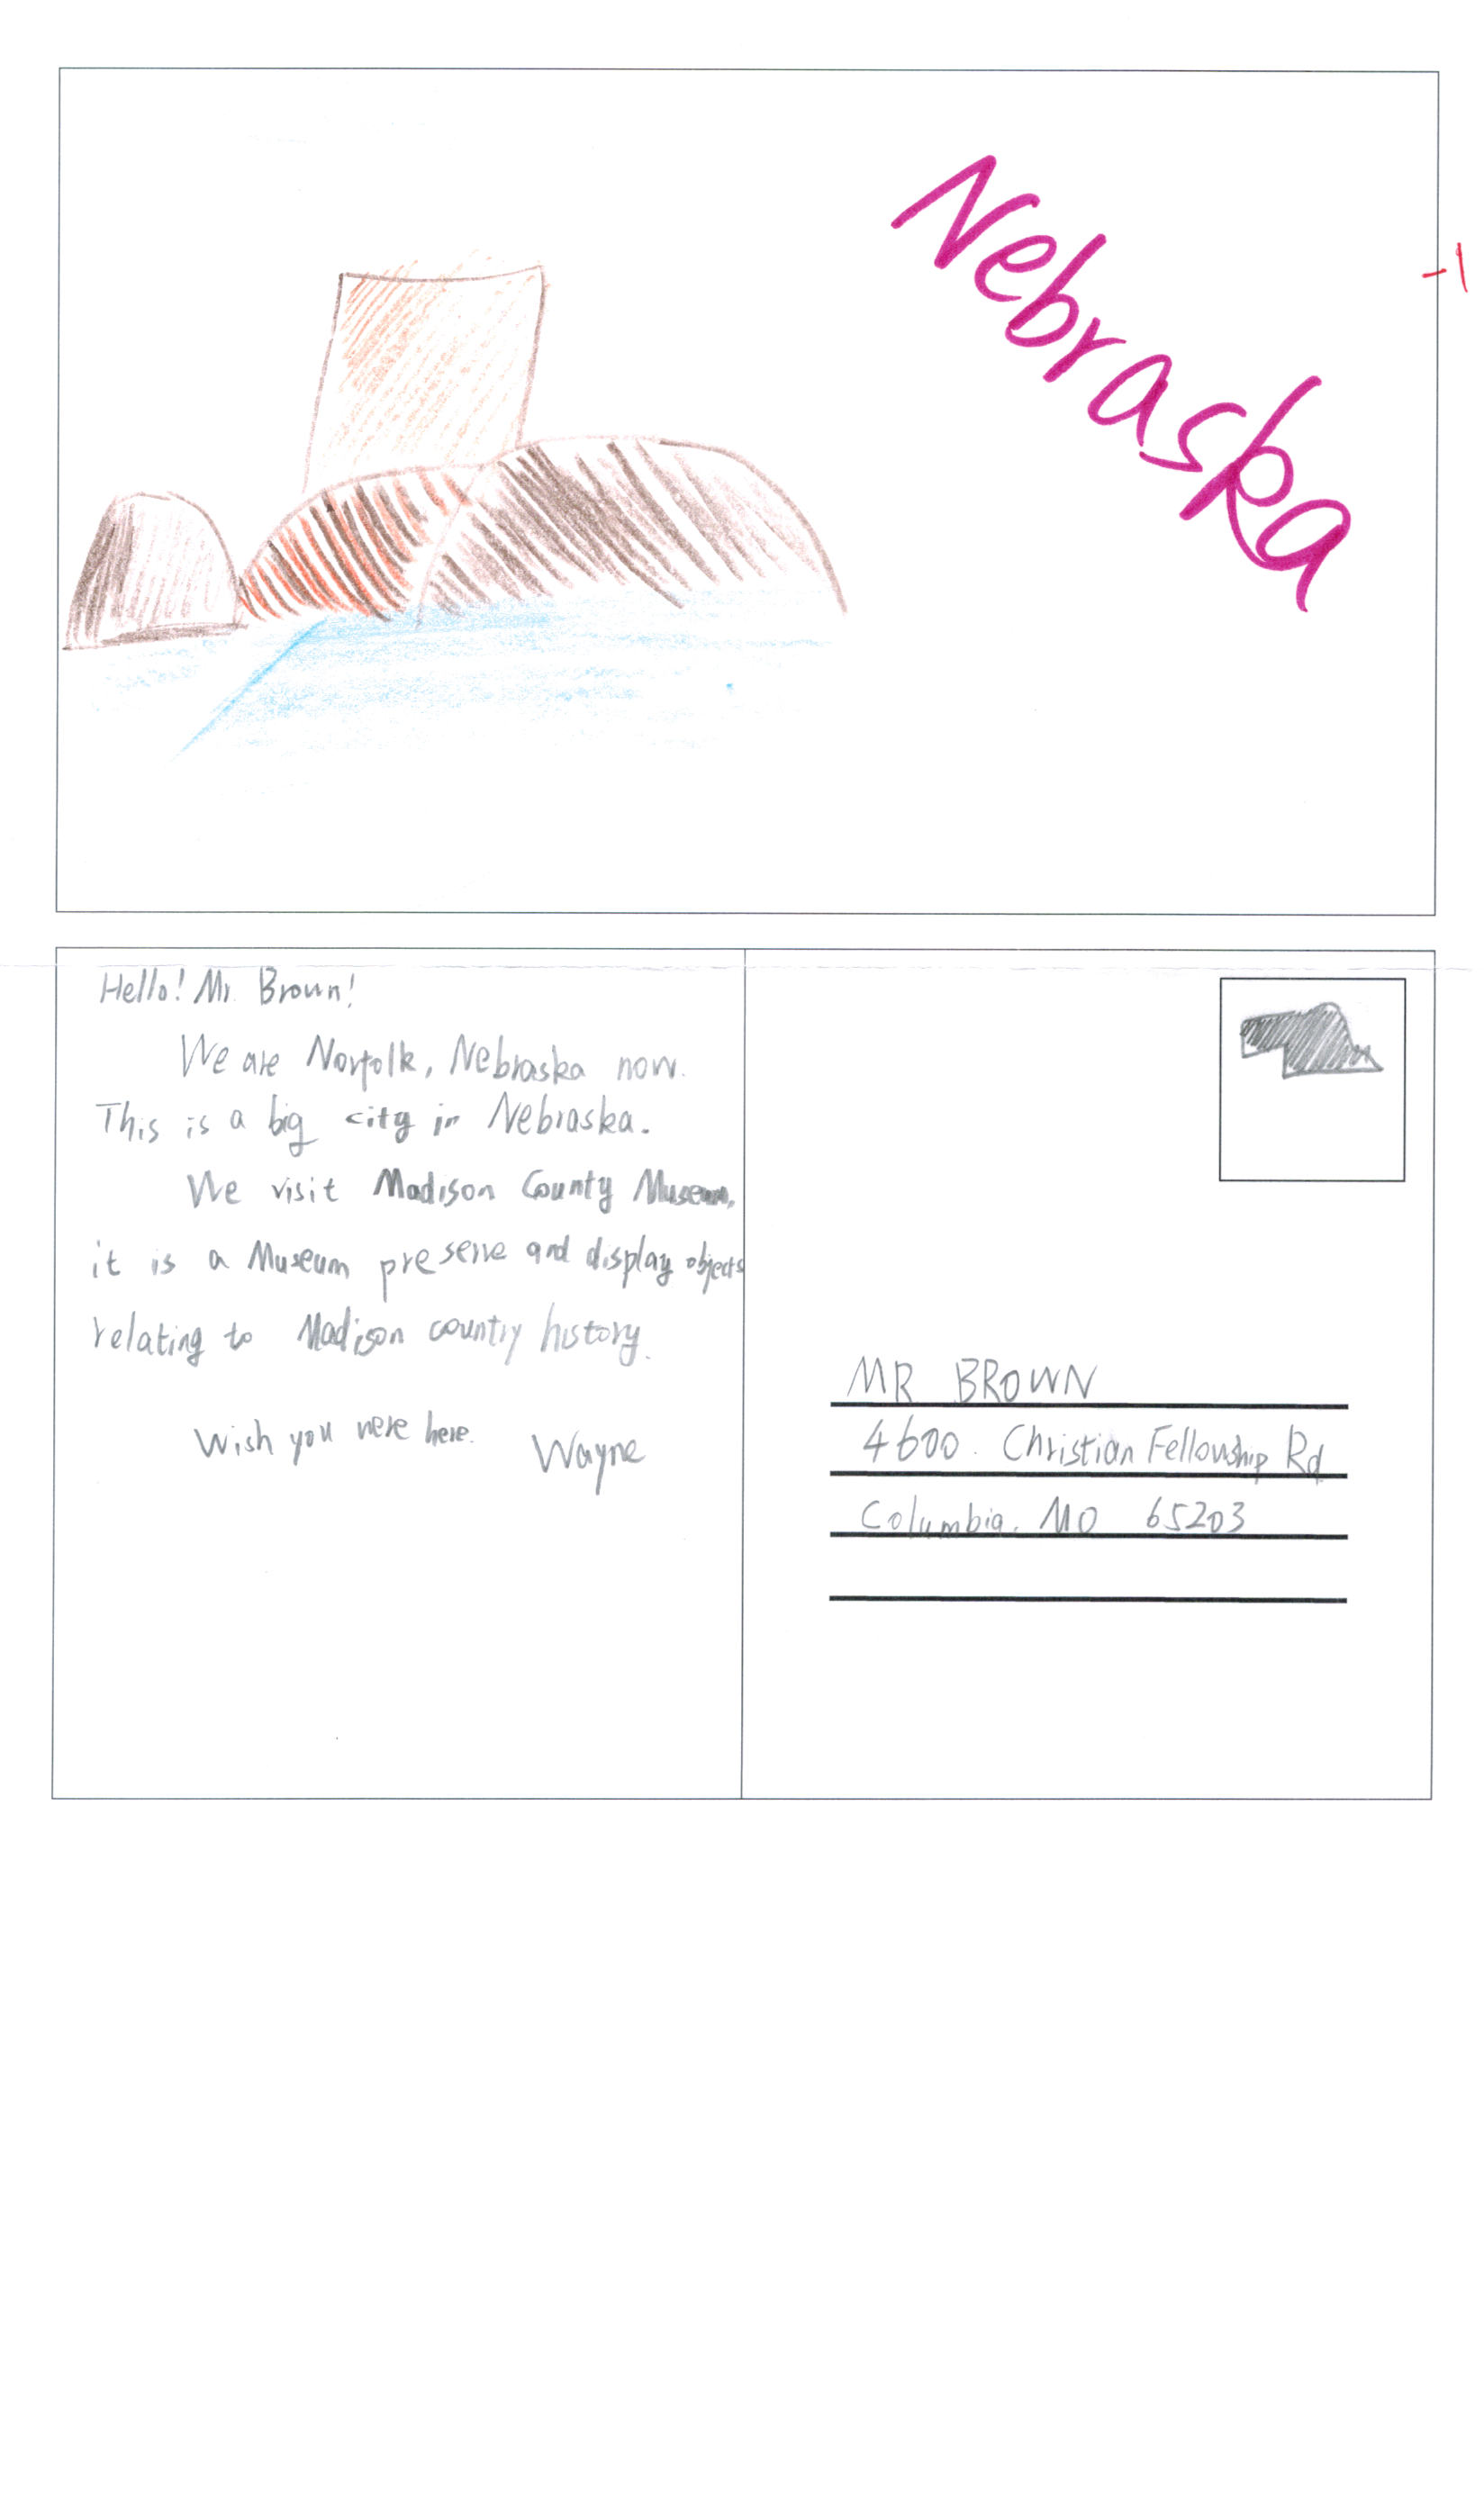 Nebraska
-1
Hello! Mr. Brown!
We are Norfolk, Nebraska now.
This is a big city in Nebraska.
We visit Madison County Museum,
it is a Museum preserve and display objects
relating to Madison country history.
Wish you were here.
Wayne
MR BROWN
4600. Christian Fellowship Rd
Columbia, MO 65203